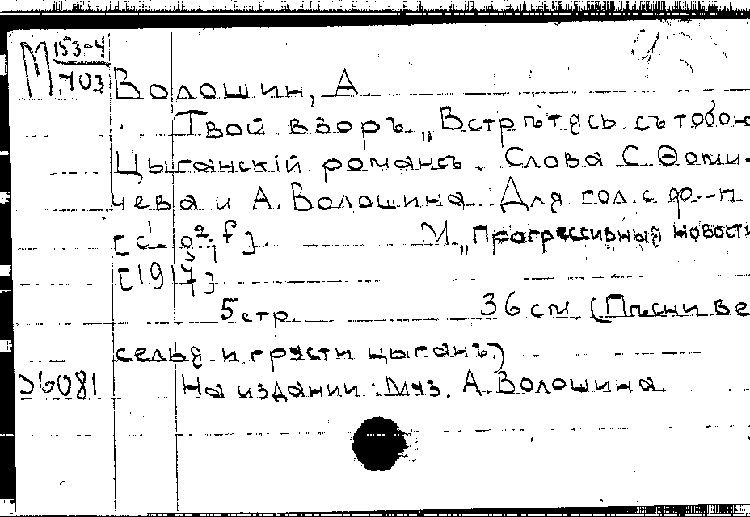 М 153-4
703
Волошин, А
Твой взоръ „Встрѣтясь съ тобою
Цыганскій романсъ. Слова С. Ѳоми-
чева и А. Волошина. Для гол. с ф.-п
М. „Прогрессивныя новости
[1917]
5 стр. 36 см (Пѣсни ве
селья и грусти цыганъ)
На издании: Муз. А. Волошина